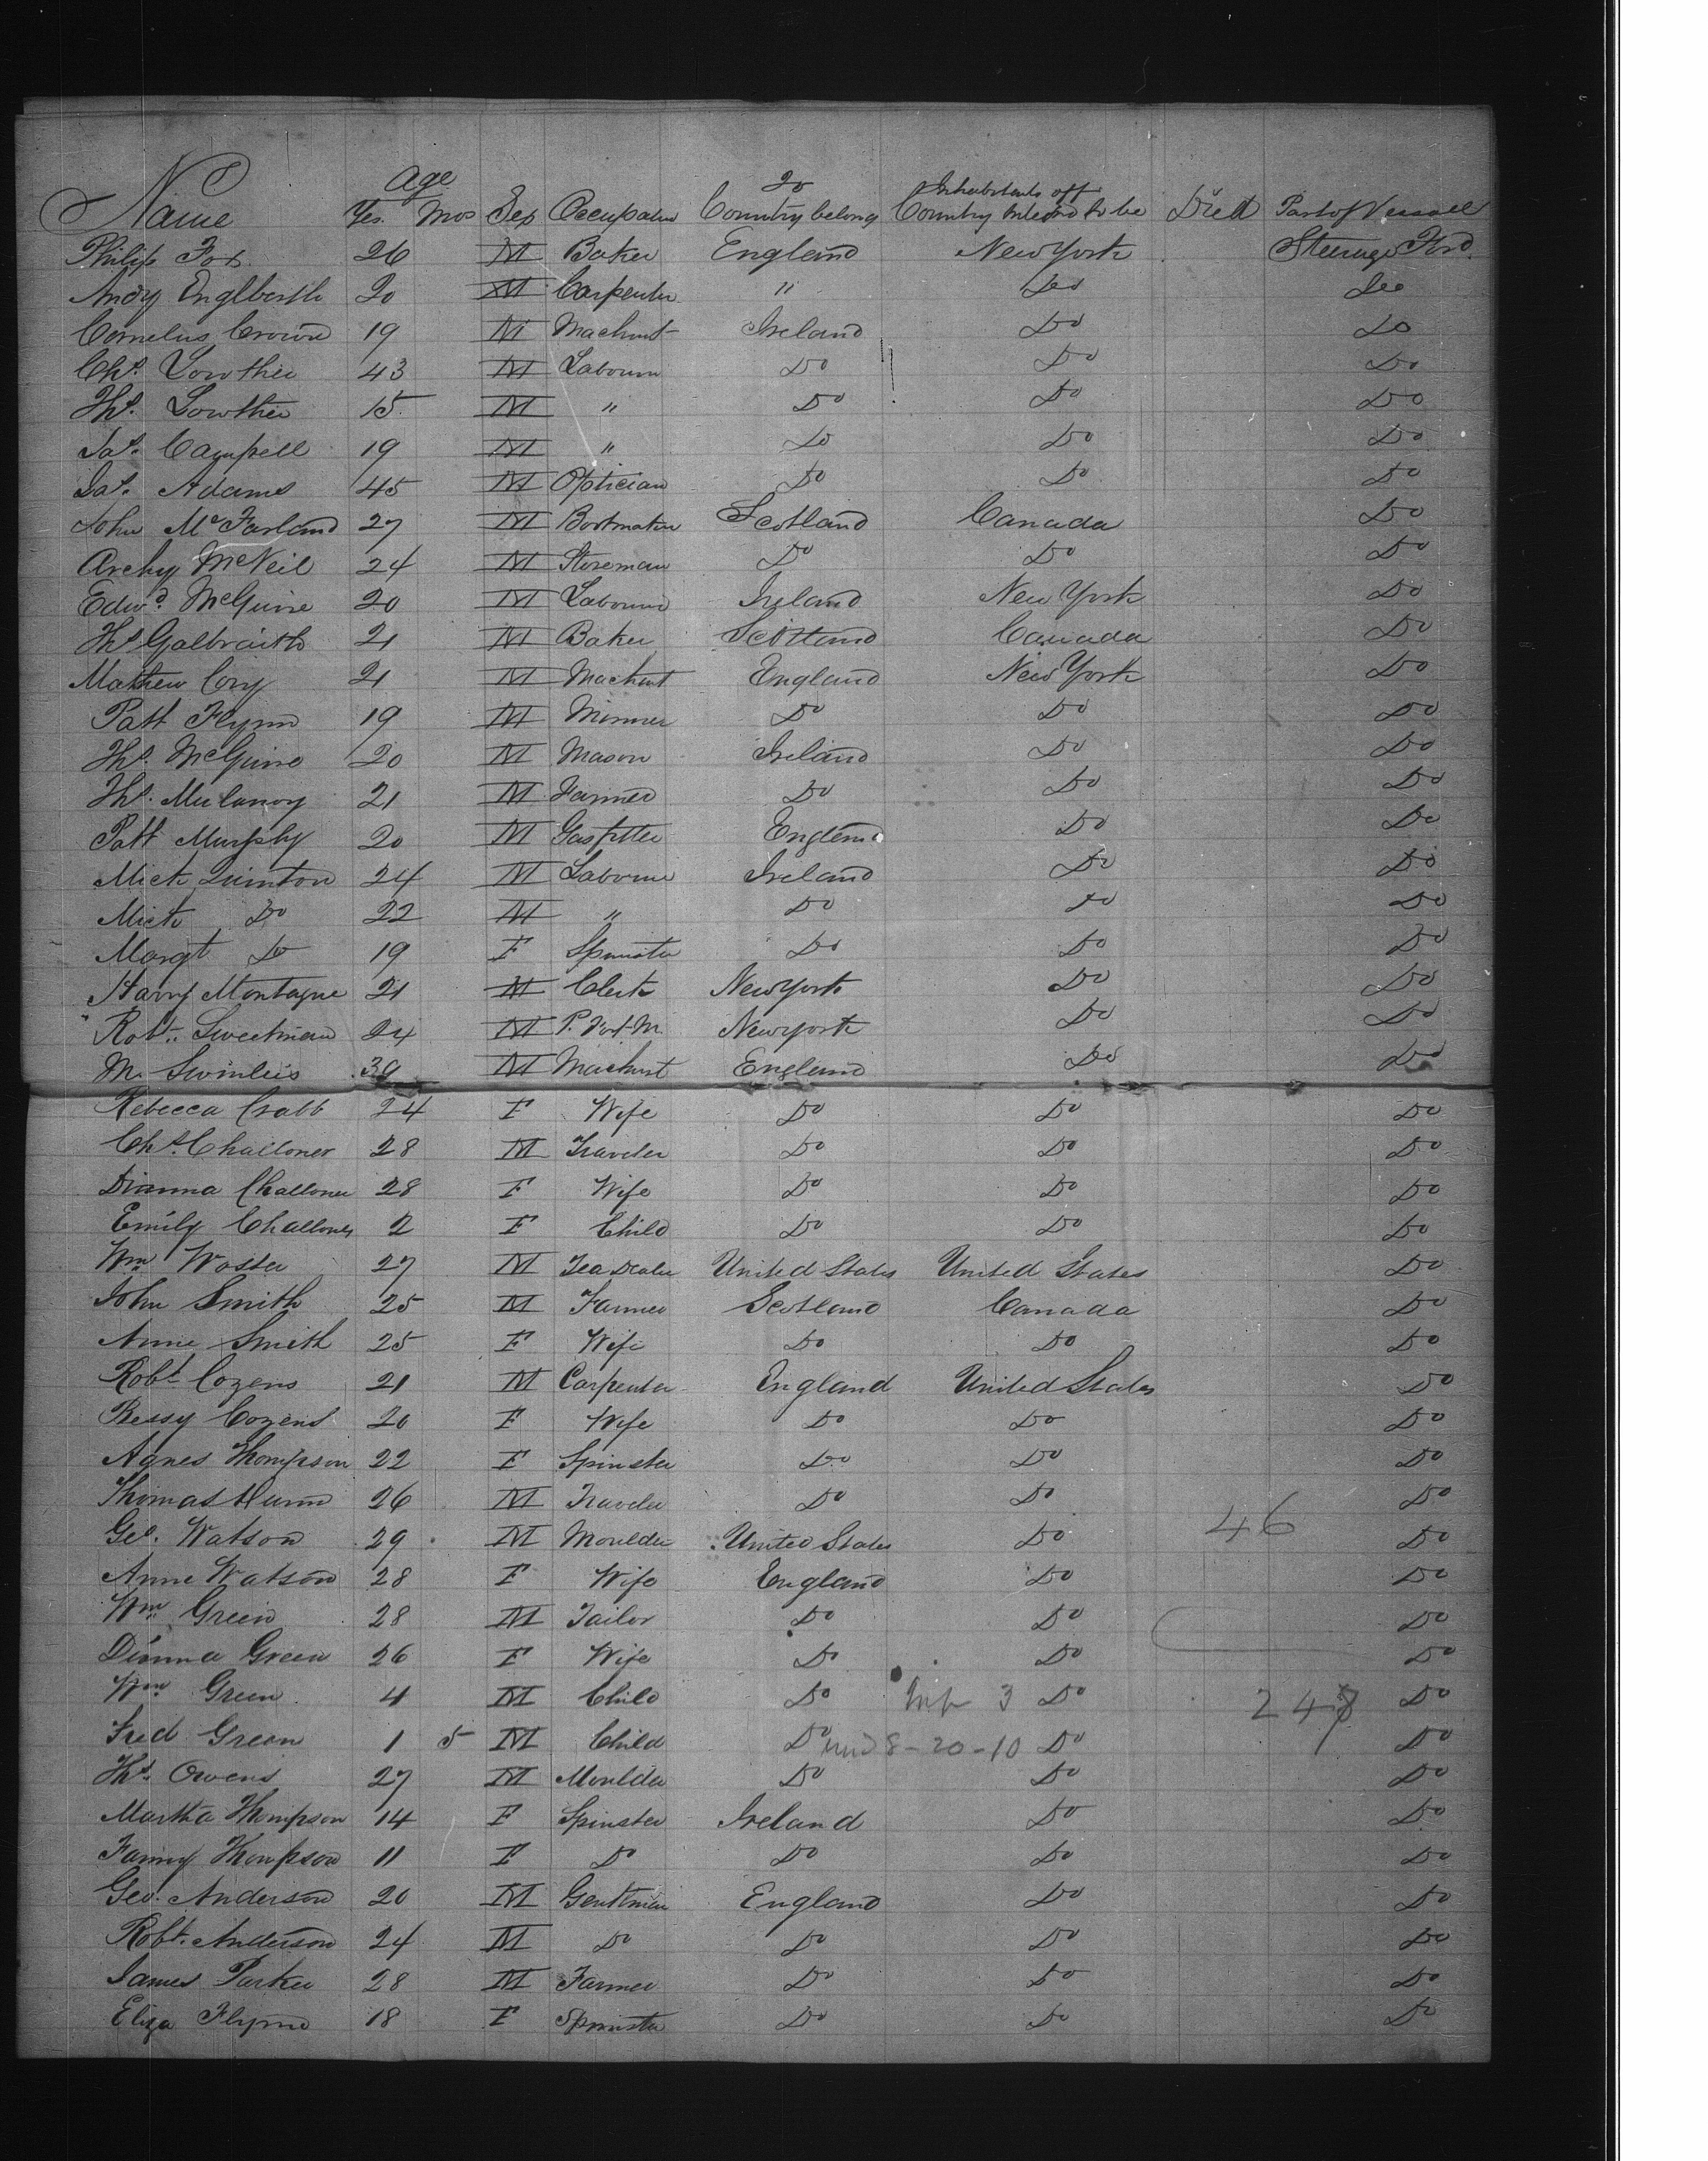 Age 20 Inhabitants off
Name Yes. Mos Sex Occupation Country belong Country Intend to be Died Part of Vessell
Philip Fox 26 M Baker England New York Steerage Ford.
Andy Englberth 20 M Carpenter " Do Do
Cornelus Crown 19 M Machinst Ireland Do Do
Chs. Lowther 43 M Labourer Do Do Do
Ths. Lowther 15 M " Do Do Do
Jas. Campell 19 M " Do Do Do
Jas. Adams 45 M Optician Do Do Do
John McFarland 27 M Bootmaker Scotland Canada Do
Archy McNeil 24 M Storeman Do Do Do
Edwd. McGuire 20 M Labourer Ireland New York Do
Ths Galbraith 21 M Baker Scotland Canada Do
Mathew Cory 21 M Machinst England New York Do
Patt Flynn 19 M Minner Do Do Do
Ths. McGuire 20 M Mason Ireland Do Do
Ths. Mulanoy 21 M Farmer Do Do Do
Patt Murphy 20 M Gasfitter England Do Do
Mick Quinton 24 M Labourer Ireland Do Do
Mick Do 22 M " Do Do Do
Margt Do 19 F Spinster Do Do Do
Harry Montague 21 M Clerk New York Do Do
Robt. Sweetman 24 M New york Do Do
M. 39 M Machinst England Do Do
Rebecca Crabb 24 F Wife Do Do Do
Chs. Challoner 28 M Traveler Do Do Do
Dianna Challoner 28 F Wife Do Do Do
Emily Challoner 2 F Child Do Do Do
Wm Woster 27 M Tea Dealer United States United States Do
John Smith 25 M Farmer Scotland Canada Do
Anne Smith 25 F Wife Do Do Do
Robt Cozens 21 M Carpenter England United States Do
Bessy Cozens 20 F Wife Do Do Do
Agnes Thompson 22 F Spinster Do Do Do
Thomas Hunn 26 M Traveler Do Do Do
46
Geo. Watson 29 M Moulder United States Do Do
Anne Watson 28 F Wife England Do Do
Wm Green 28 M Tailor Do Do Do
Dianna Green 26 F Wife Do Do Do
Wm Green 4 M Child Do Inf 3 Do 247 Do
Fred Green 1 5 M Child Do 8-20-10 Do Do
Ths. Owens 27 M Moulder Do Do Do
Martha Thompson 14 F Spinster Ireland Do Do
Fanny Thompson 11 F Do Do Do Do
Geo. Anderson 20 M Gentleman England Do Do
Robt. Anderson 24 M Do Do Do Do
James Parker 28 M Farmer Do Do Do
Eliza Flynn 18 F Spinster Do Do Do